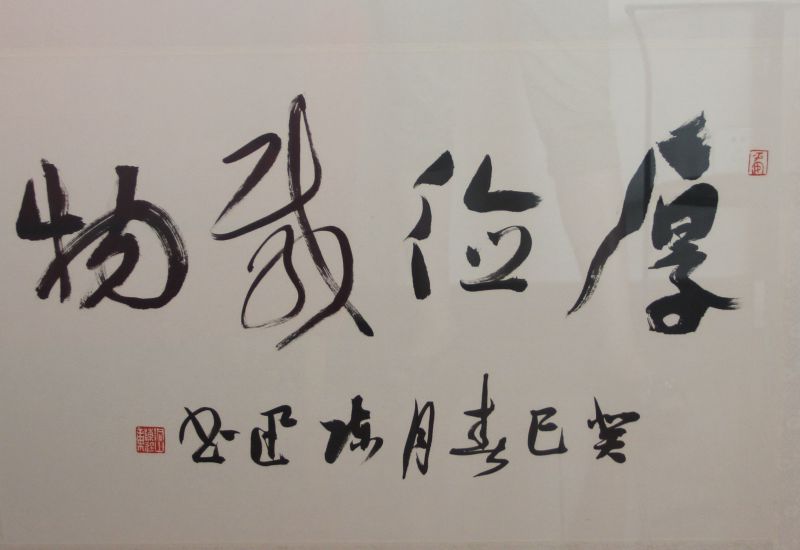 厚德载物
癸巳春月陈书